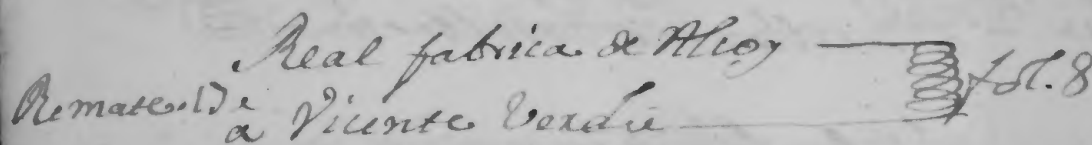 Real fabrica de Alcoy
Remate. De
a Vicente Verdu
fol. 8